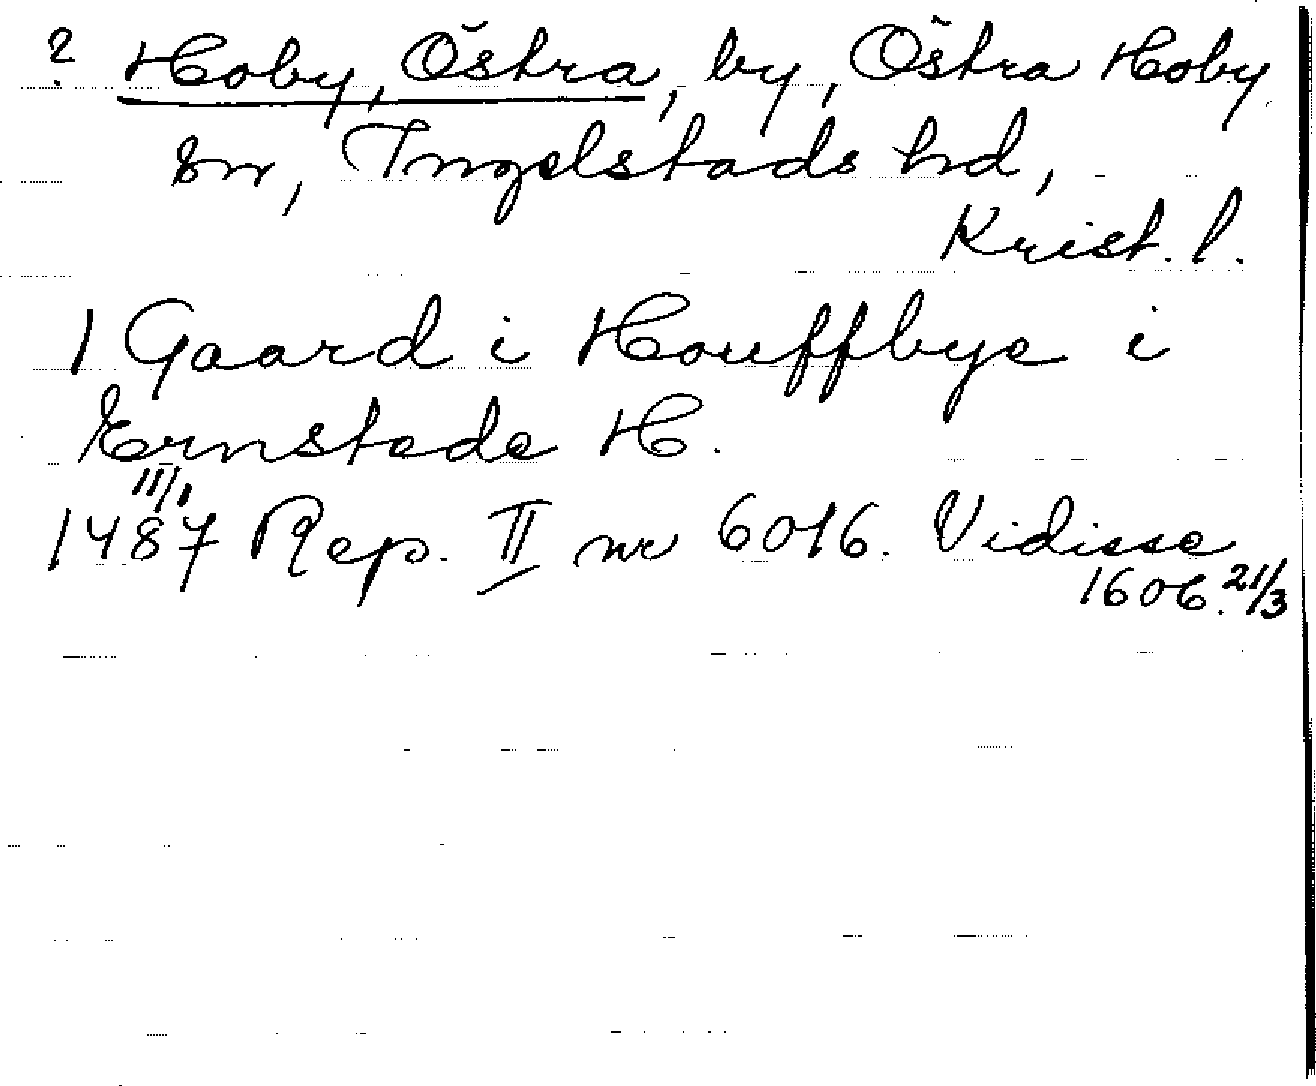 ? Hoby, Östra, by, Östra Hoby
sn, Ingelstads hd,
Krist. l.
1 Gaard i Houffbye i
Ernstede H.
11/1
1487 Rep. II nr 6016. Vidisse
1606. 21/3